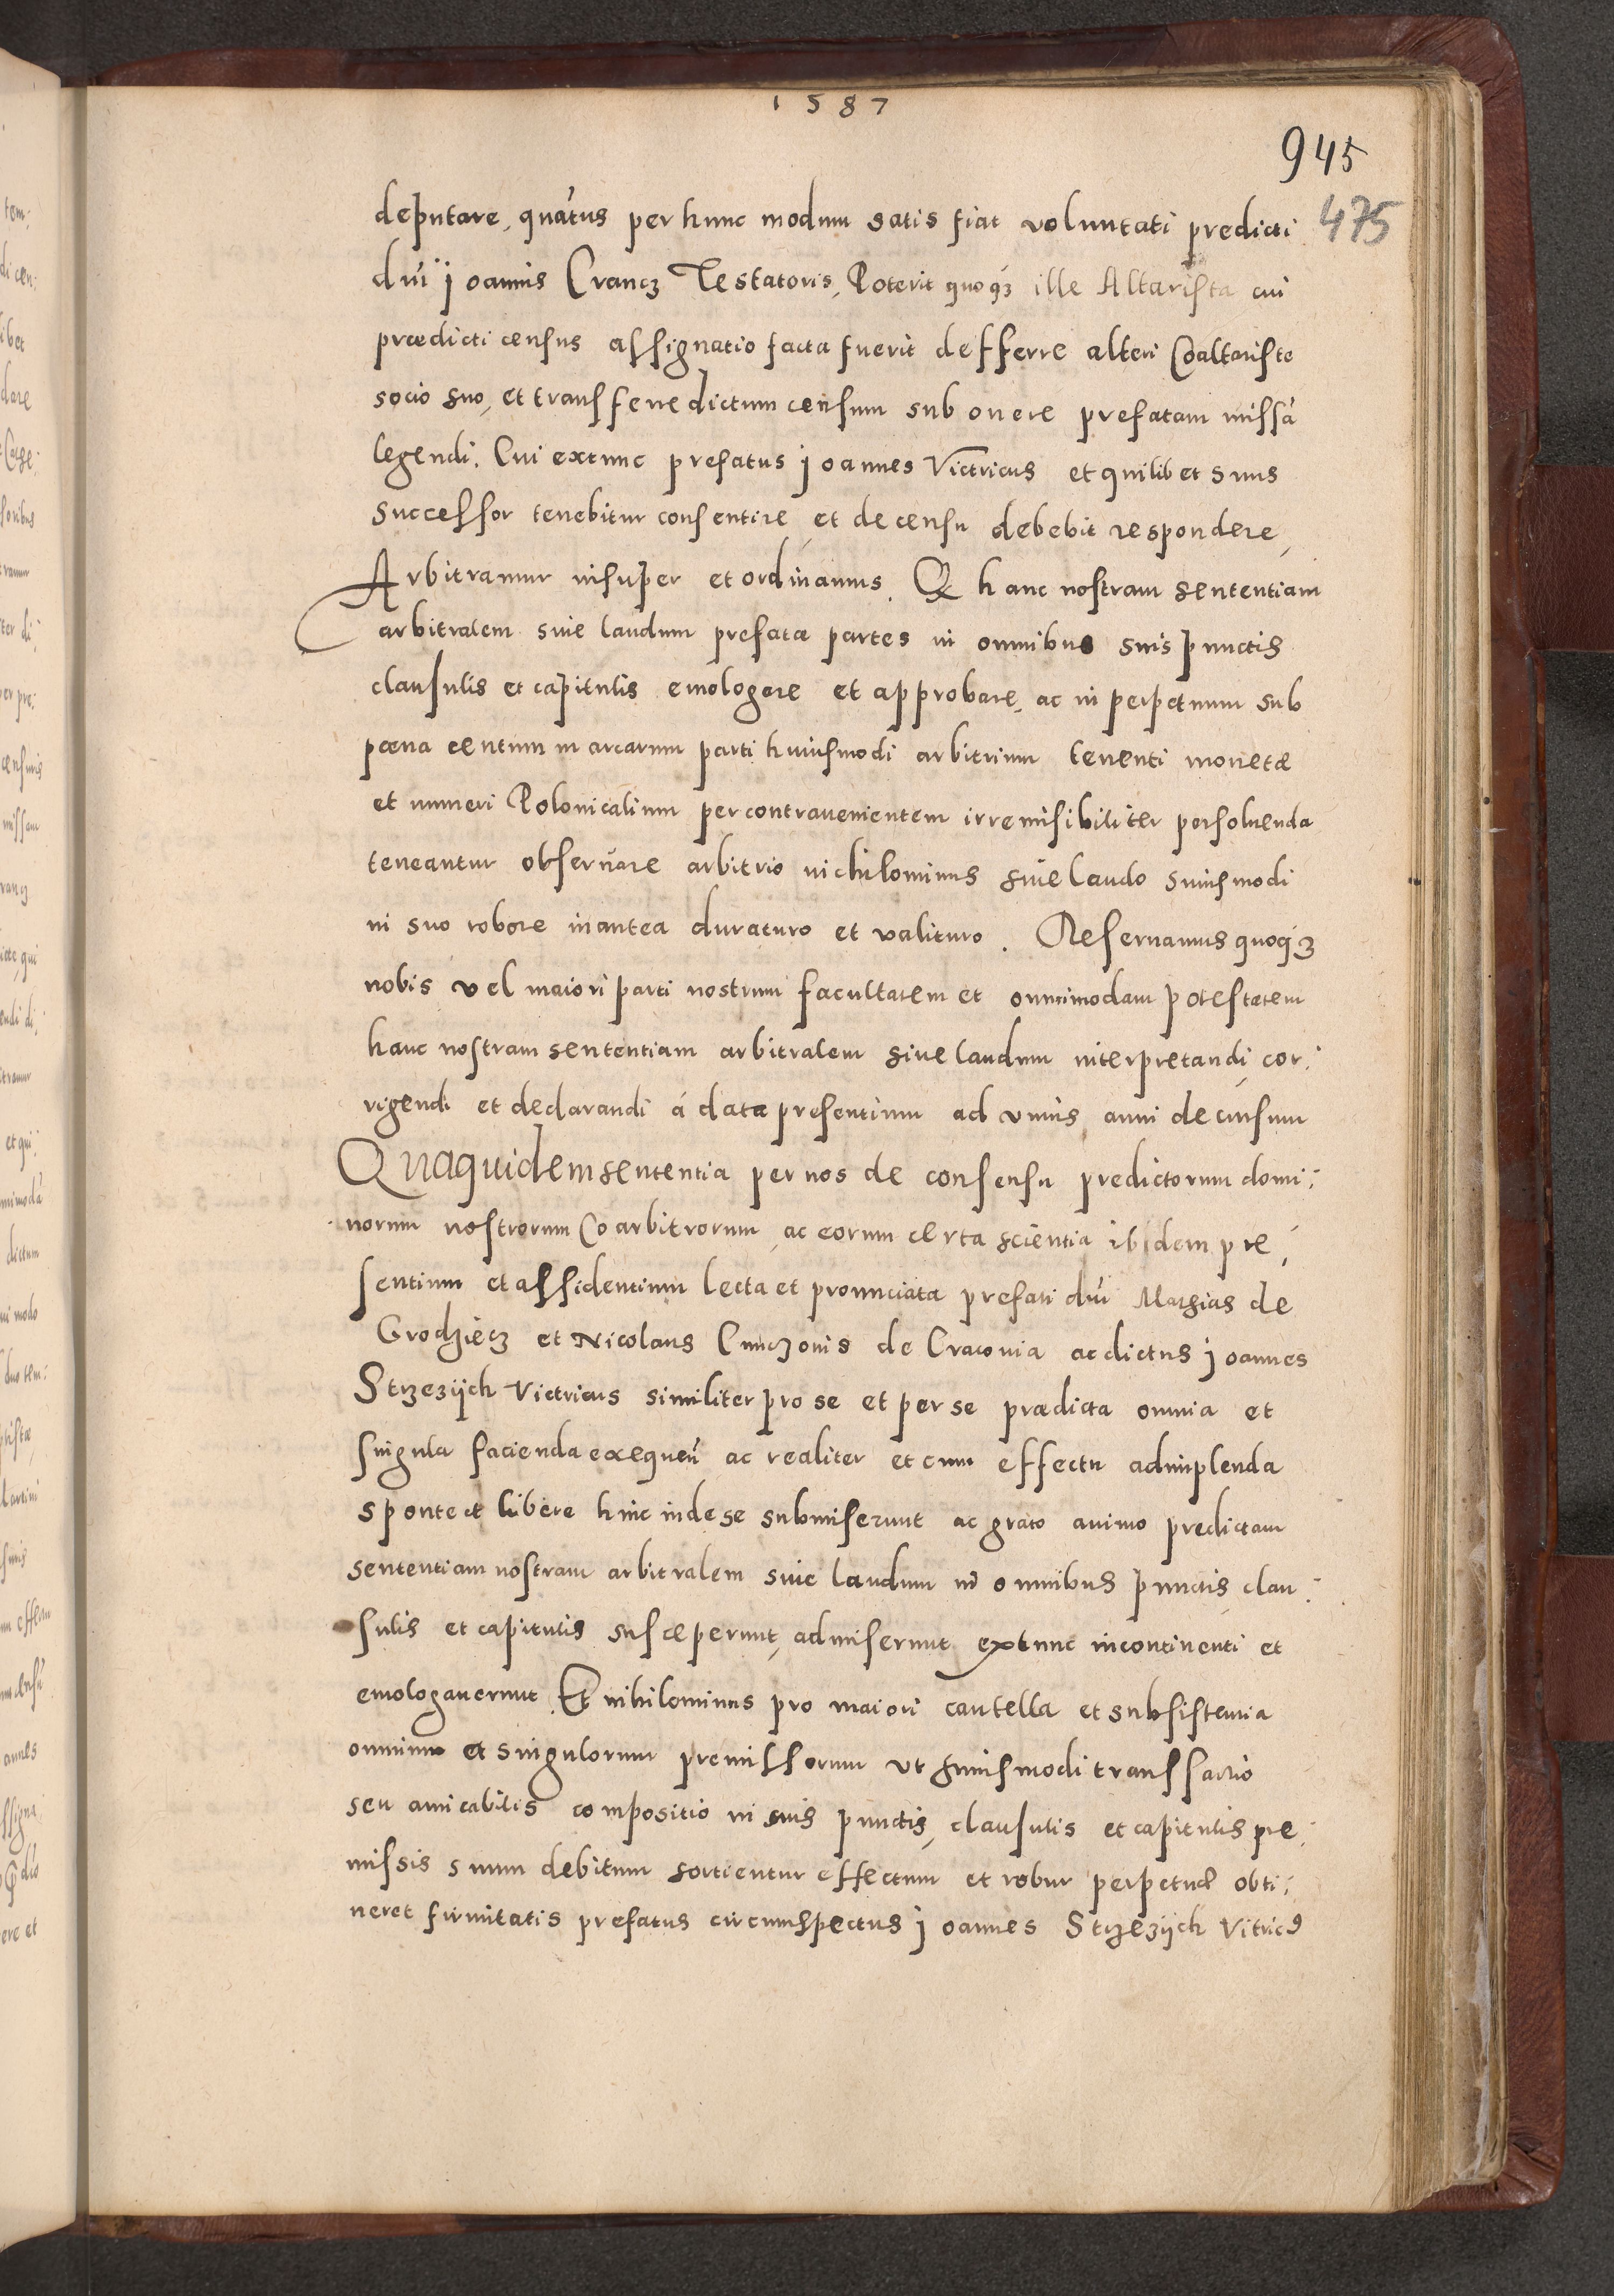 1587
945
475
deputare, quātus per hunc modum satis fiat voluntati predicti
dnī joannis Crancz Testatoris, Poterit quoqȝ ille Altarista cui
prædicti census assignatio facta fuerit defferre alteri Coaltariste
socio suo, et transferre dictum censum sub onere prefatam missā
legendi. Cui extunc prefatus joannes Victricus et quilibet suus
Successor tenebitur consentire, et de censu debebit respondere,
Arbitramur insuper et ordinamus. Q hanc nostram sententiam
arbitralem siue laudum prefatæ partes in omnibus suis punctis
clausulis et capitulis emologare et approbare, ac in perpetuum sub
pæna centum marcarum parti huiusmodi arbitrium tenenti monetæ
et numeri Polonicalium per contrauenientem irremisibiliter persoluenda
teneantur obseruare arbitrio nichilominus siue laudo suiusmodi
in suo robore inantea duraturo et valituro. Reseruamus quoqȝ
nobis vel maiori parti nostrum facultatem et omnimodam potestatem
hanc nostram sententiam arbitralem siue laudum interpretandi, cor:
rigendi et declarandi á data presentium ad vnius anni decursum
Quaquidem sententia per nos de consensu predictorum domi:
norum nostrorum Coarbitrorum, ac eorum certa scientia ibidem præ,
sentium et assidentium lecta et pronunciata prefati dnī Mathias de
Grodziecz et Nicolaus Cunczonis de Cracouia ac dictus joannes
Strzezÿch Victricus similiter pro se et per se prædicta omnia et
singula facienda exequeñ ac realiter et cum effectu adimplenda
sponte et libere hinc inde se submiserunt ac grato animo predictam
sententiam nostram arbitralem siue laudum in omnibus punctis clau:
sulis et capitulis susceperunt, admiserunt extunc incontinenti et
emologauerunt. Et nihilominus pro maiori cautella et subsistentia
omnium et singulorum premissorum vt huiusmodi transsactio
seu amicabilis compositio in suis punctis, clausulis et capitulis præ:
missis suum debitum sortientur effectum et robur perpetuæ obti:
neret firmitatis prefatus circumspectus joannes Strzezÿch Vitricꝰ